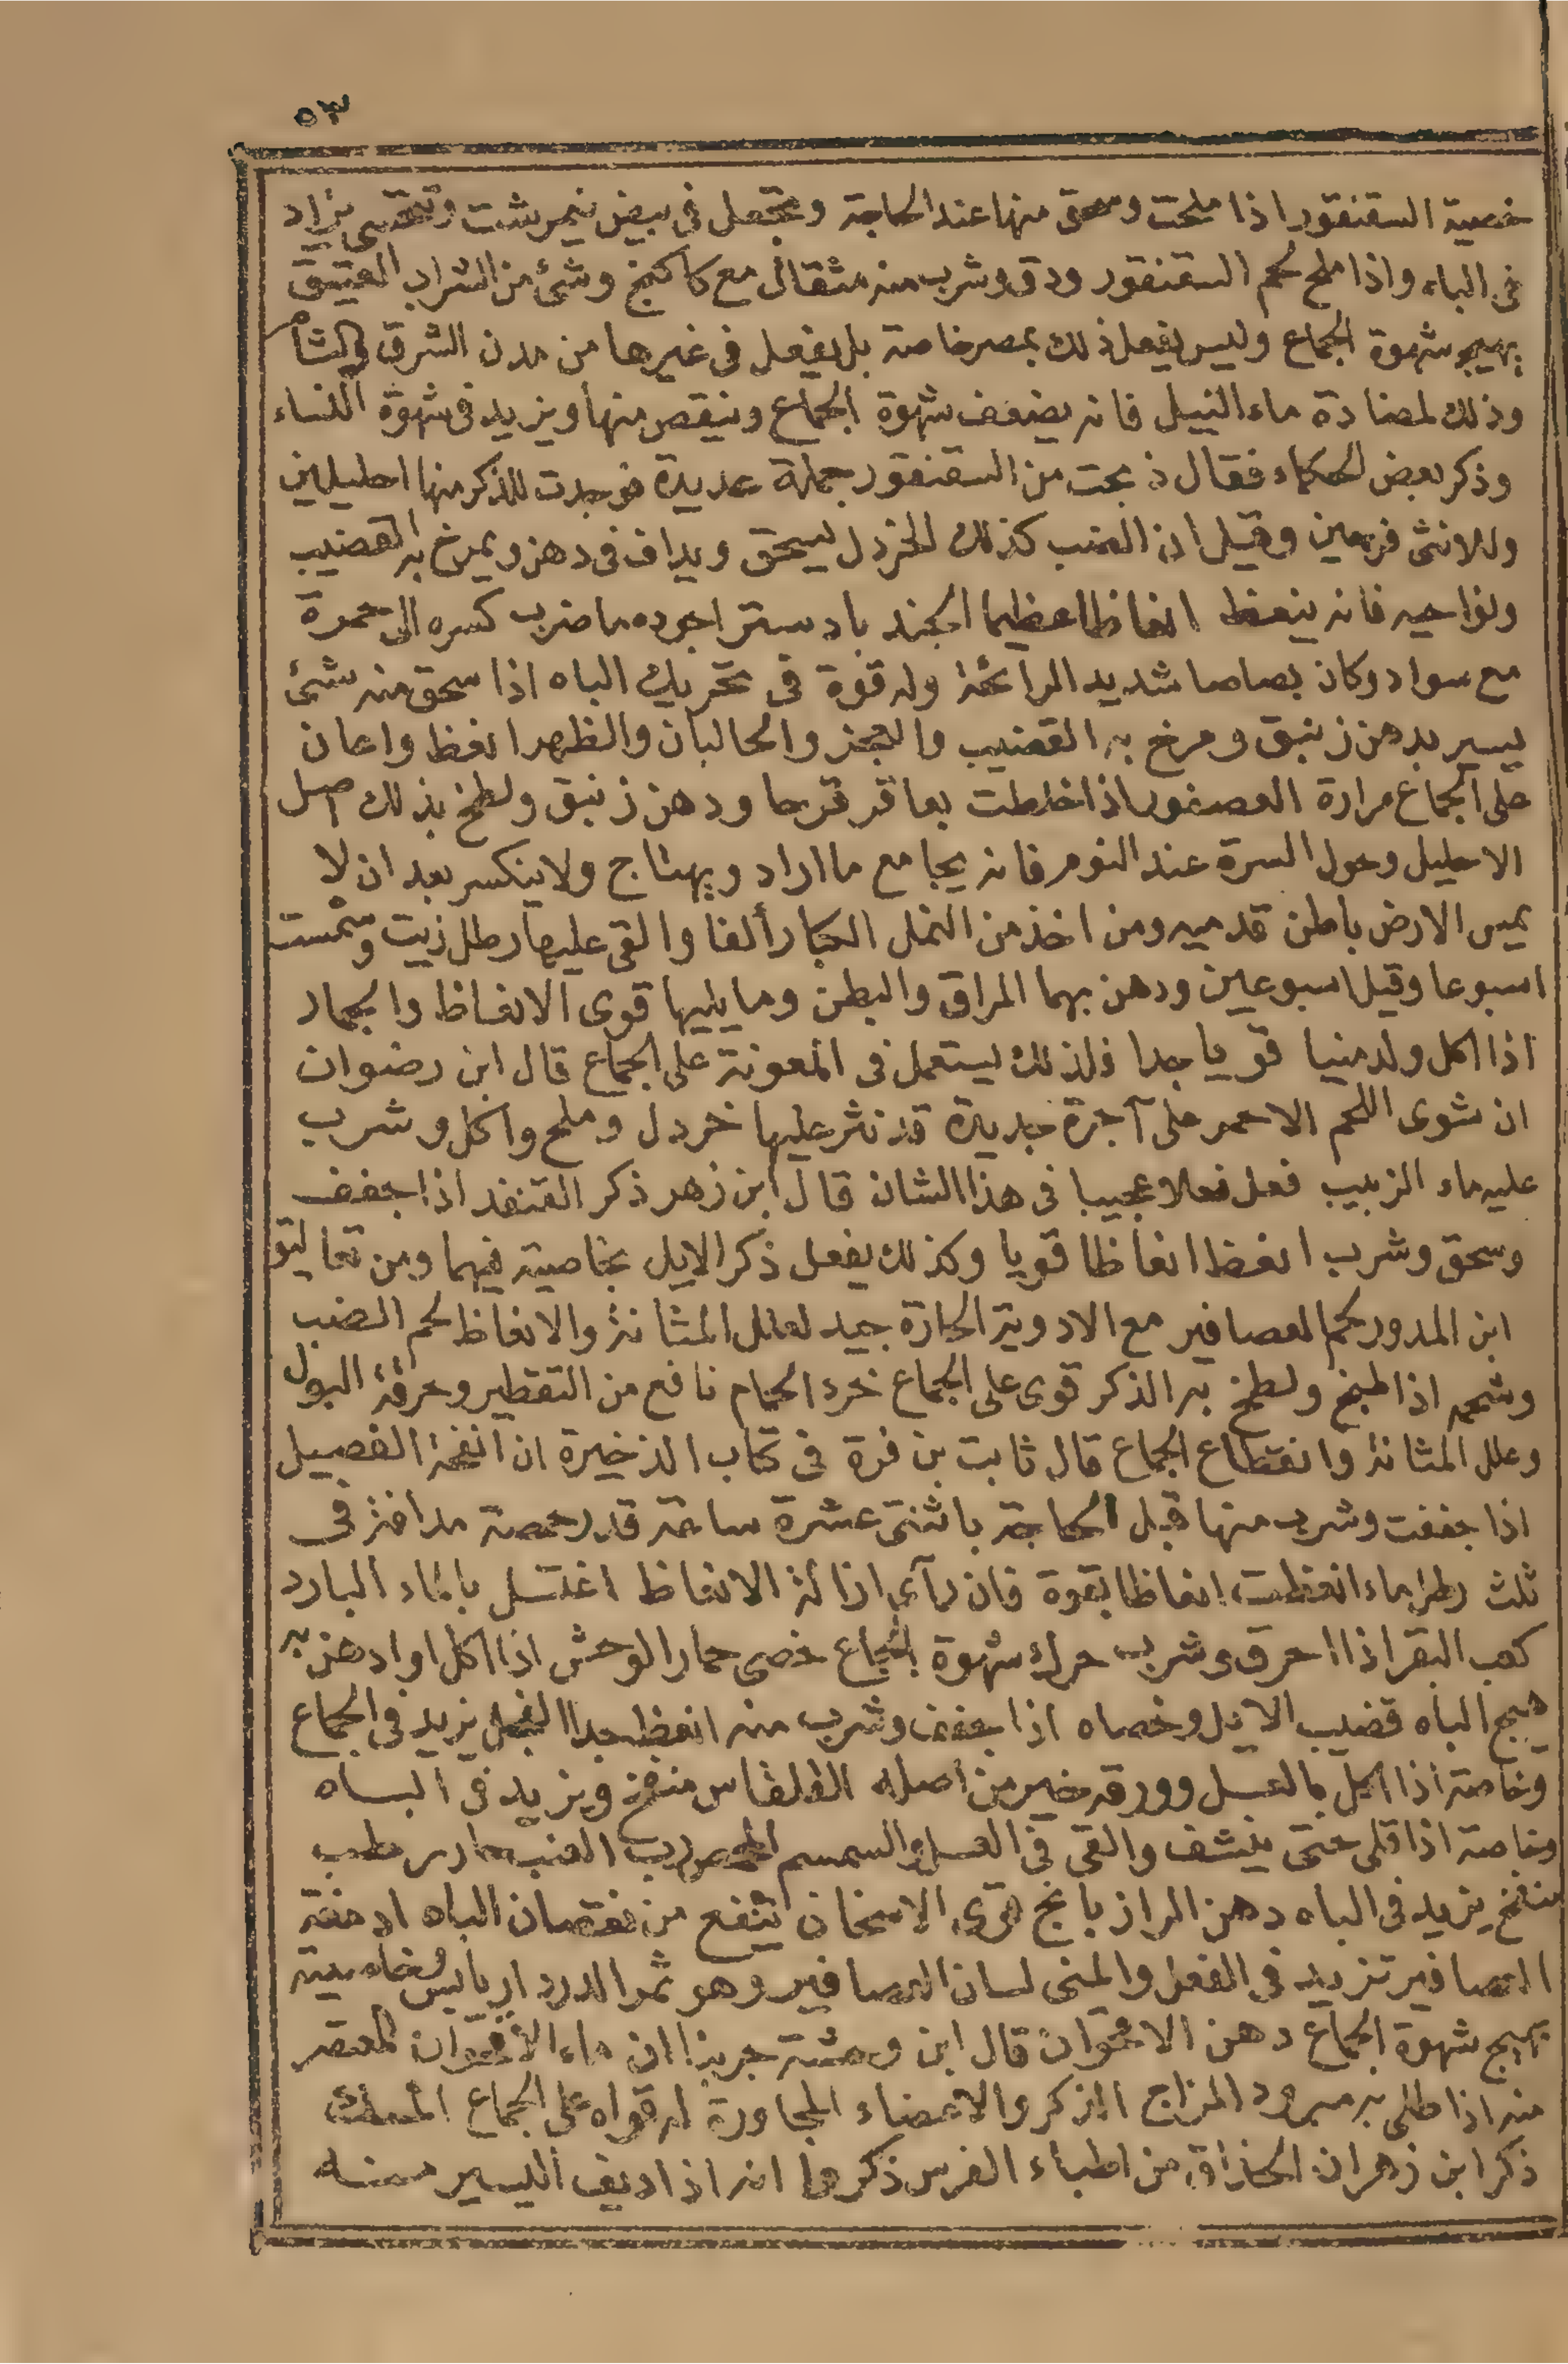 ٥٣
خصية السقنقور اذا ملحت وسحق منها عند الحاجة وتجعل فى بيض نيمرشت وتحتسى تزاد
فى الباه واذا ملح لحم السقنقور ودق وشرب منه مثقال مع كاكنج وشئ من الشراب العتيق
يهيج شهوة الجماع وليس يفعل ذلك بمصر خاصة بل يفعل فى غيرها من مدن الشرق والشام
وذلك لمضادة ماء النيل فانه يضعف شهوة الجماع وينقص منها ويزيد فى شهوة النساء
وذكر بعض الحكماء فقال ذبحت من السقنقور جملة عديدة فوجدت للذكر منها احليلين
وللانثى فرجين وقيل ان الضب كذلك الخردل يسحق ويداف فى دهن ويمرخ به القضيب
ونواحيه فانه ينعظ انعاظا عظيما الجند بادستر اجوده ما ضرب كسره الى حمرة
مع سواد وكان بصاصا شديد الرائحة وله قوة فى تحريك الباه اذا سحق منه شئ
يسير بدهن زنبق ومرخ به القضيب والعجز والحالبان والظهر انعظ واعان
على الجماع مرارة العصفور اذا خلطت بعاقر قرحا ودهن زنبق ولطخ بذلك اصل
الاحليل وحول السرة عند النوم فانه يجامع ما اراد ويهتاج ولا ينكسر بعد ان لا
يمس الارض باطن قدميه ومن اخذ من النمل الكبار ألفا والقى عليها رطل زيت وشمست
اسبوعا وقيل اسبوعين ودهن بهما المراق والبطن وما يليها قوى الانعاظ والجمار
اذا اكل ولد منيا قويا جدا فلذلك يستعمل فى المعونة على الجماع قال ابن رضوان
ان شوى اللحم الاحمر على آجرة جديدة قد نثر عليها خردل وملح واكل وشرب
عليه ماء الزبيب فعل فعلا عجيبا فى هذا الشان قال ابن زهر ذكر القنفد اذا جفف
وسحق وشرب انعظ انعاظا قويا وكذلك يفعل ذكر الايل بخاصية فيهما ومن تعاليق
ابن المدور لحم العصافير مع الادوية الحارة جيد لعلل المثانة والانعاظ لحم الضب
وشحمه اذا طبخ ولطخ به الذكر قوى على الجماع خرء الحمام نافع من التقطير وحرقة البول
وعلل المثانة وانقطاع الجماع قال ثابت بن قرة فى كتاب الذخيرة ان انفحة الفصيل
اذا جففت وشرب منها قبل الحاجة باثنتى عشرة ساعة قدر حمصة مدافة فى
ثلث رطل ماء انعظت انعاظا بقوة فان رآى ازالة الانعاظ اغتسل بالماء البارد
كعب البقر اذا احرق وشرب حرك شهوة الجماع خصى حمار الوحش اذا اكل او ادهن به
هيج الباه قضيب الايل وخصاه اذا جفف وشرب منه انعظ جدا الفجل يزيد فى الجماع
وخاصة اذا اكل بالعسل وورقه خير من اصله القلقاس منفخ ويزيد فى الباه
وخاصة اذا قلى حتى ينشف والقى فى العسل والسمسم العنب حار رطب
منفخ يزيد فى الباه دهن الرازيانج قوى الاسخان ينفع من نقصان الباه ادمغة
العصافير تزيد فى الفعل والمنى لسان العصافير وهو ثمر الدردار يابس بخاصية
يهيج شهوة الجماع دهن الاقحوان قال ابن وحشة جربنا ان ماء الاقحوان المعتصر
منه اذا طلى به مبرود المزاج الذكر والاعضاء المجاورة له قواه على الجماع المسك
ذكر ابن زهر ان الحذاق من اطباء الفرس ذكروا انه اذا اديف اليسير منه